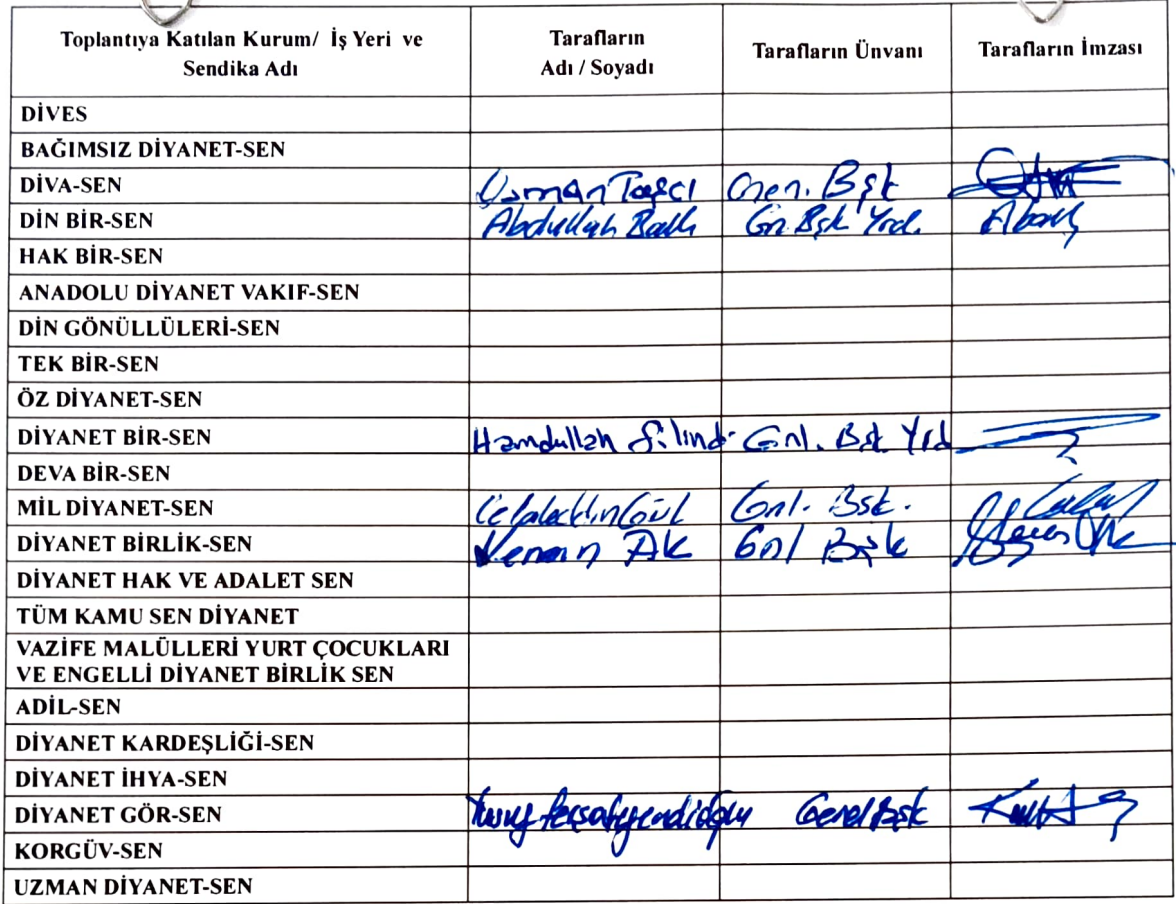 Toplantıya Katılan Kurum/ İş Yeri ve Sendika Adı
Tarafların Adı / Soyadı
Tarafların Ünvanı
Tarafların İmzası
DİVES
BAĞIMSIZ DİYANET-SEN
DİVA-SEN Osman Taşcı Gen. Bşk
DİN BİR-SEN Abdullah Ballı Gn. Bşk Yrd.
HAK BİR-SEN
ANADOLU DİYANET VAKIF-SEN
DİN GÖNÜLLÜLERİ-SEN
TEK BİR-SEN
ÖZ DİYANET-SEN
DİYANET BİR-SEN Hamdullah Gnl. Bşk Yrd
DEVA BİR-SEN
MİL DİYANET-SEN Celaleddin Gül Gnl. Bşk.
DİYANET BİRLİK-SEN Kenan Ak Gnl Bşk
DİYANET HAK VE ADALET SEN
TÜM KAMU SEN DİYANET
VAZİFE MALÜLLERİ YURT ÇOCUKLARI
VE ENGELLİ DİYANET BİRLİK SEN
ADİL-SEN
DİYANET KARDEŞLİĞİ-SEN
DİYANET İHYA-SEN
DİYANET GÖR-SEN Yusuf Genel Bşk
KORGÜV-SEN
UZMAN DİYANET-SEN